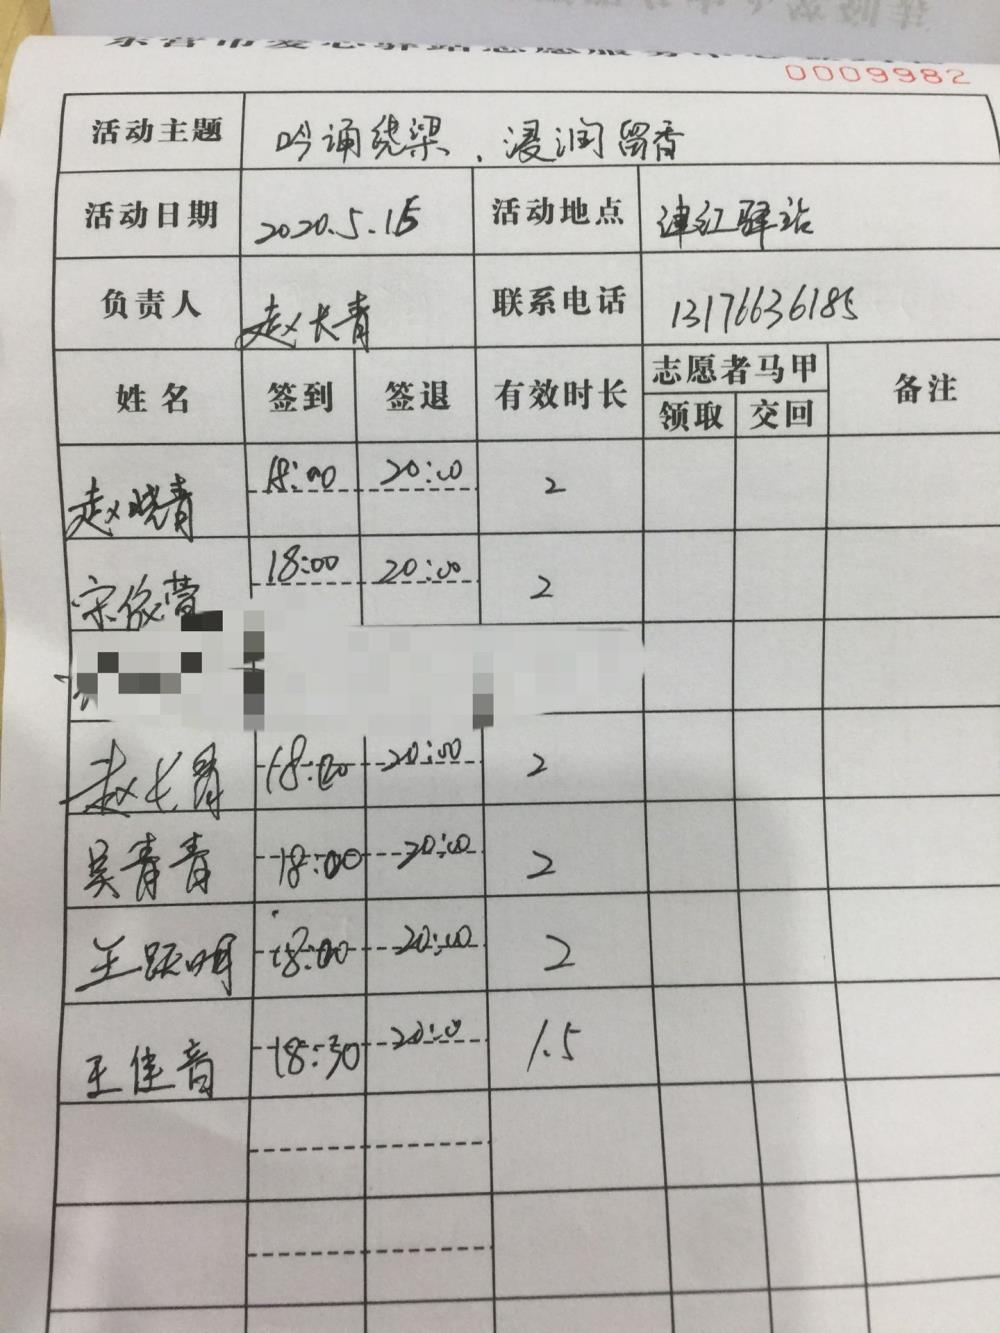 东营市爱心驿站志愿服务
0009982
活动主题 吟诵绕梁、浸润留香
活动日期 2020.5.15 活动地点 津江驿站
负责人 赵长青 联系电话 13176636185
姓名 签到 签退 有效时长 志愿者马甲 备注
领取 交回
赵晓青 18:00 20:00 2
宋依萱 18:00 20:00 2
赵长青 18:00 20:00 2
吴青青 18:00 20:00 2
王跃明 18:00 20:00 2
王佳音 18:30 20:00 1.5